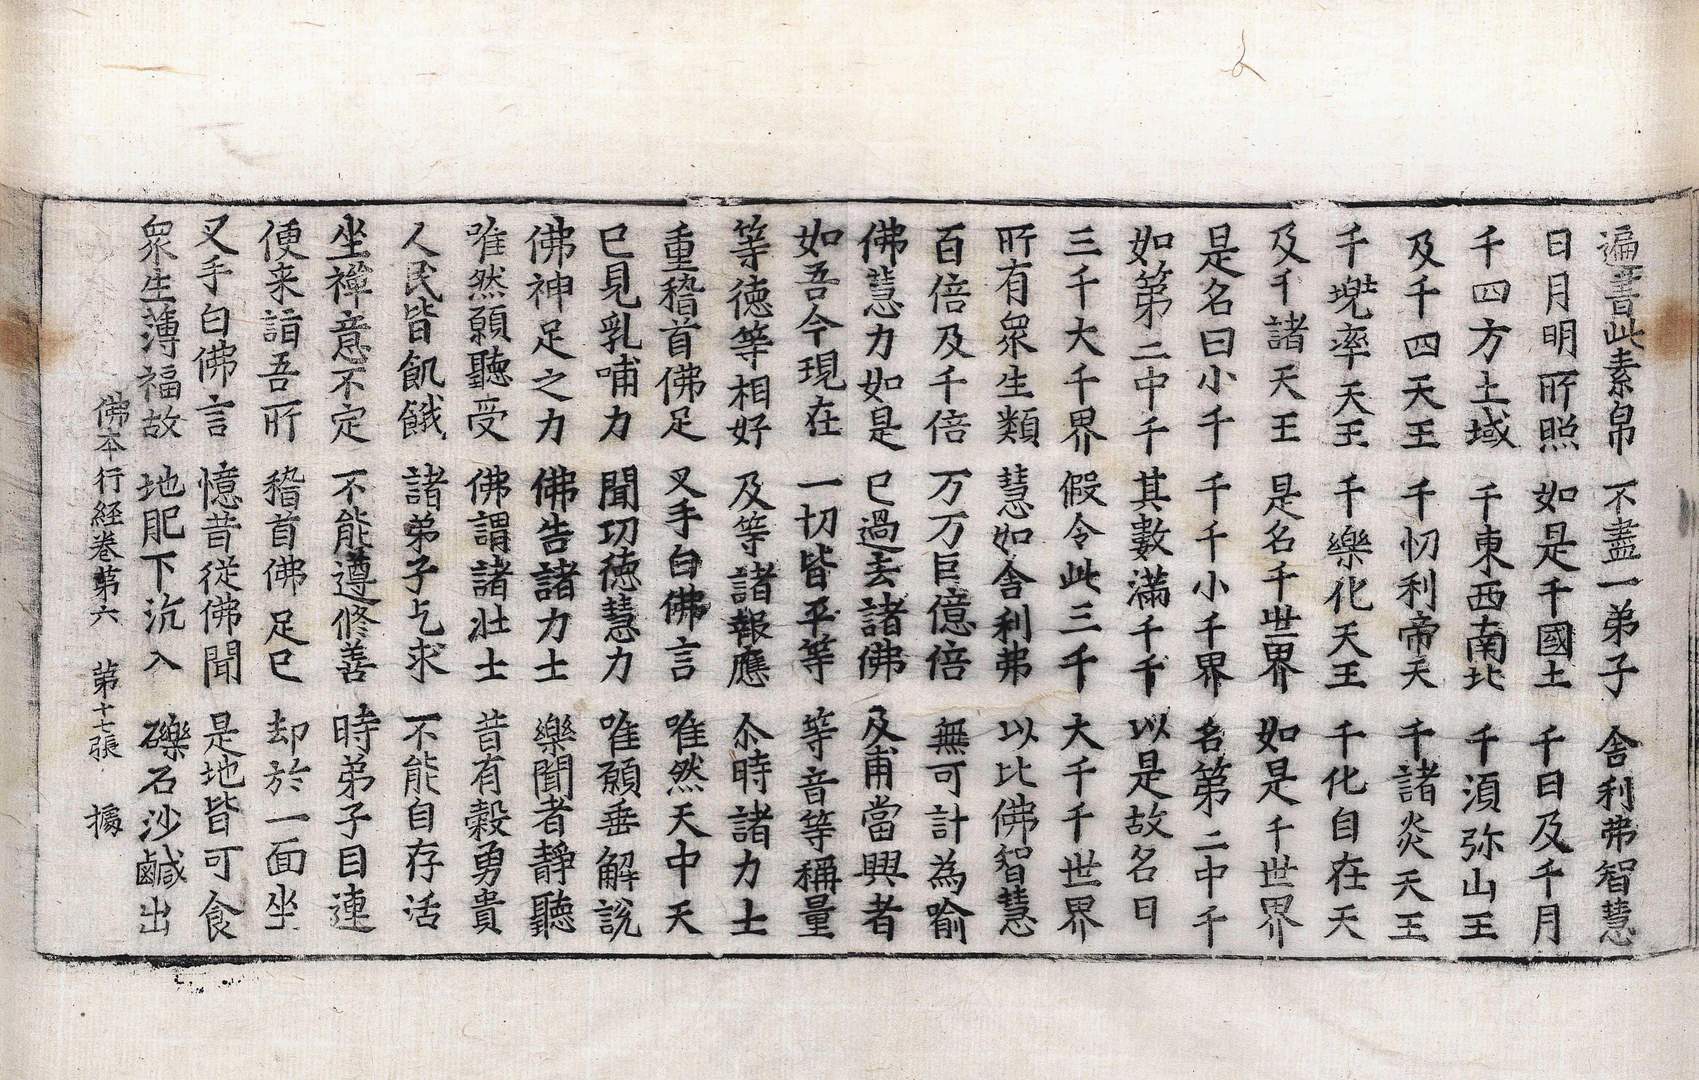 遍書此素帛 不盡一弟子 舍利弗智慧
日月明所照 如是千國土 千日及千月
千四方土域 千東西南北 千須弥山王
及千四天王 千忉利帝天 千諸炎天王
千兜率天王 千樂化天王 千化自在天
及千諸天王 是名千世界 如是千世界
是名曰小千 千千小千界 名第二中千
如第二中千 其數滿千千 以是故名曰
三千大千界 假令此三千 大千千世界
所有衆生類 慧如舍利弗 以比佛智慧
百倍及千倍 万万巨億倍 無可計為喻
佛慧力如是 已過去諸佛 及甫當興者
如吾今現在 一切皆平等 等音等稱量
等德等相好 及等諸報應 尒時諸力士
重稽首佛足 叉手白佛言 唯然天中天
已見乳哺力 聞功德慧力 唯願垂解說
佛神足之力 佛告諸力士 樂聞者靜聽
唯然願聽受 佛謂諸壯士 昔有穀勇貴
人民皆飢餓 諸弟子乞求 不能自存活
坐禪意不定 不能遵修善 時弟子目連
便来詣吾所 稽首佛足已 却於一面坐
叉手白佛言 憶昔從佛聞 是地皆可食
衆生薄福故 地肥下沉入 礫石沙鹹出
佛本行經卷第六 第十七張 㩀